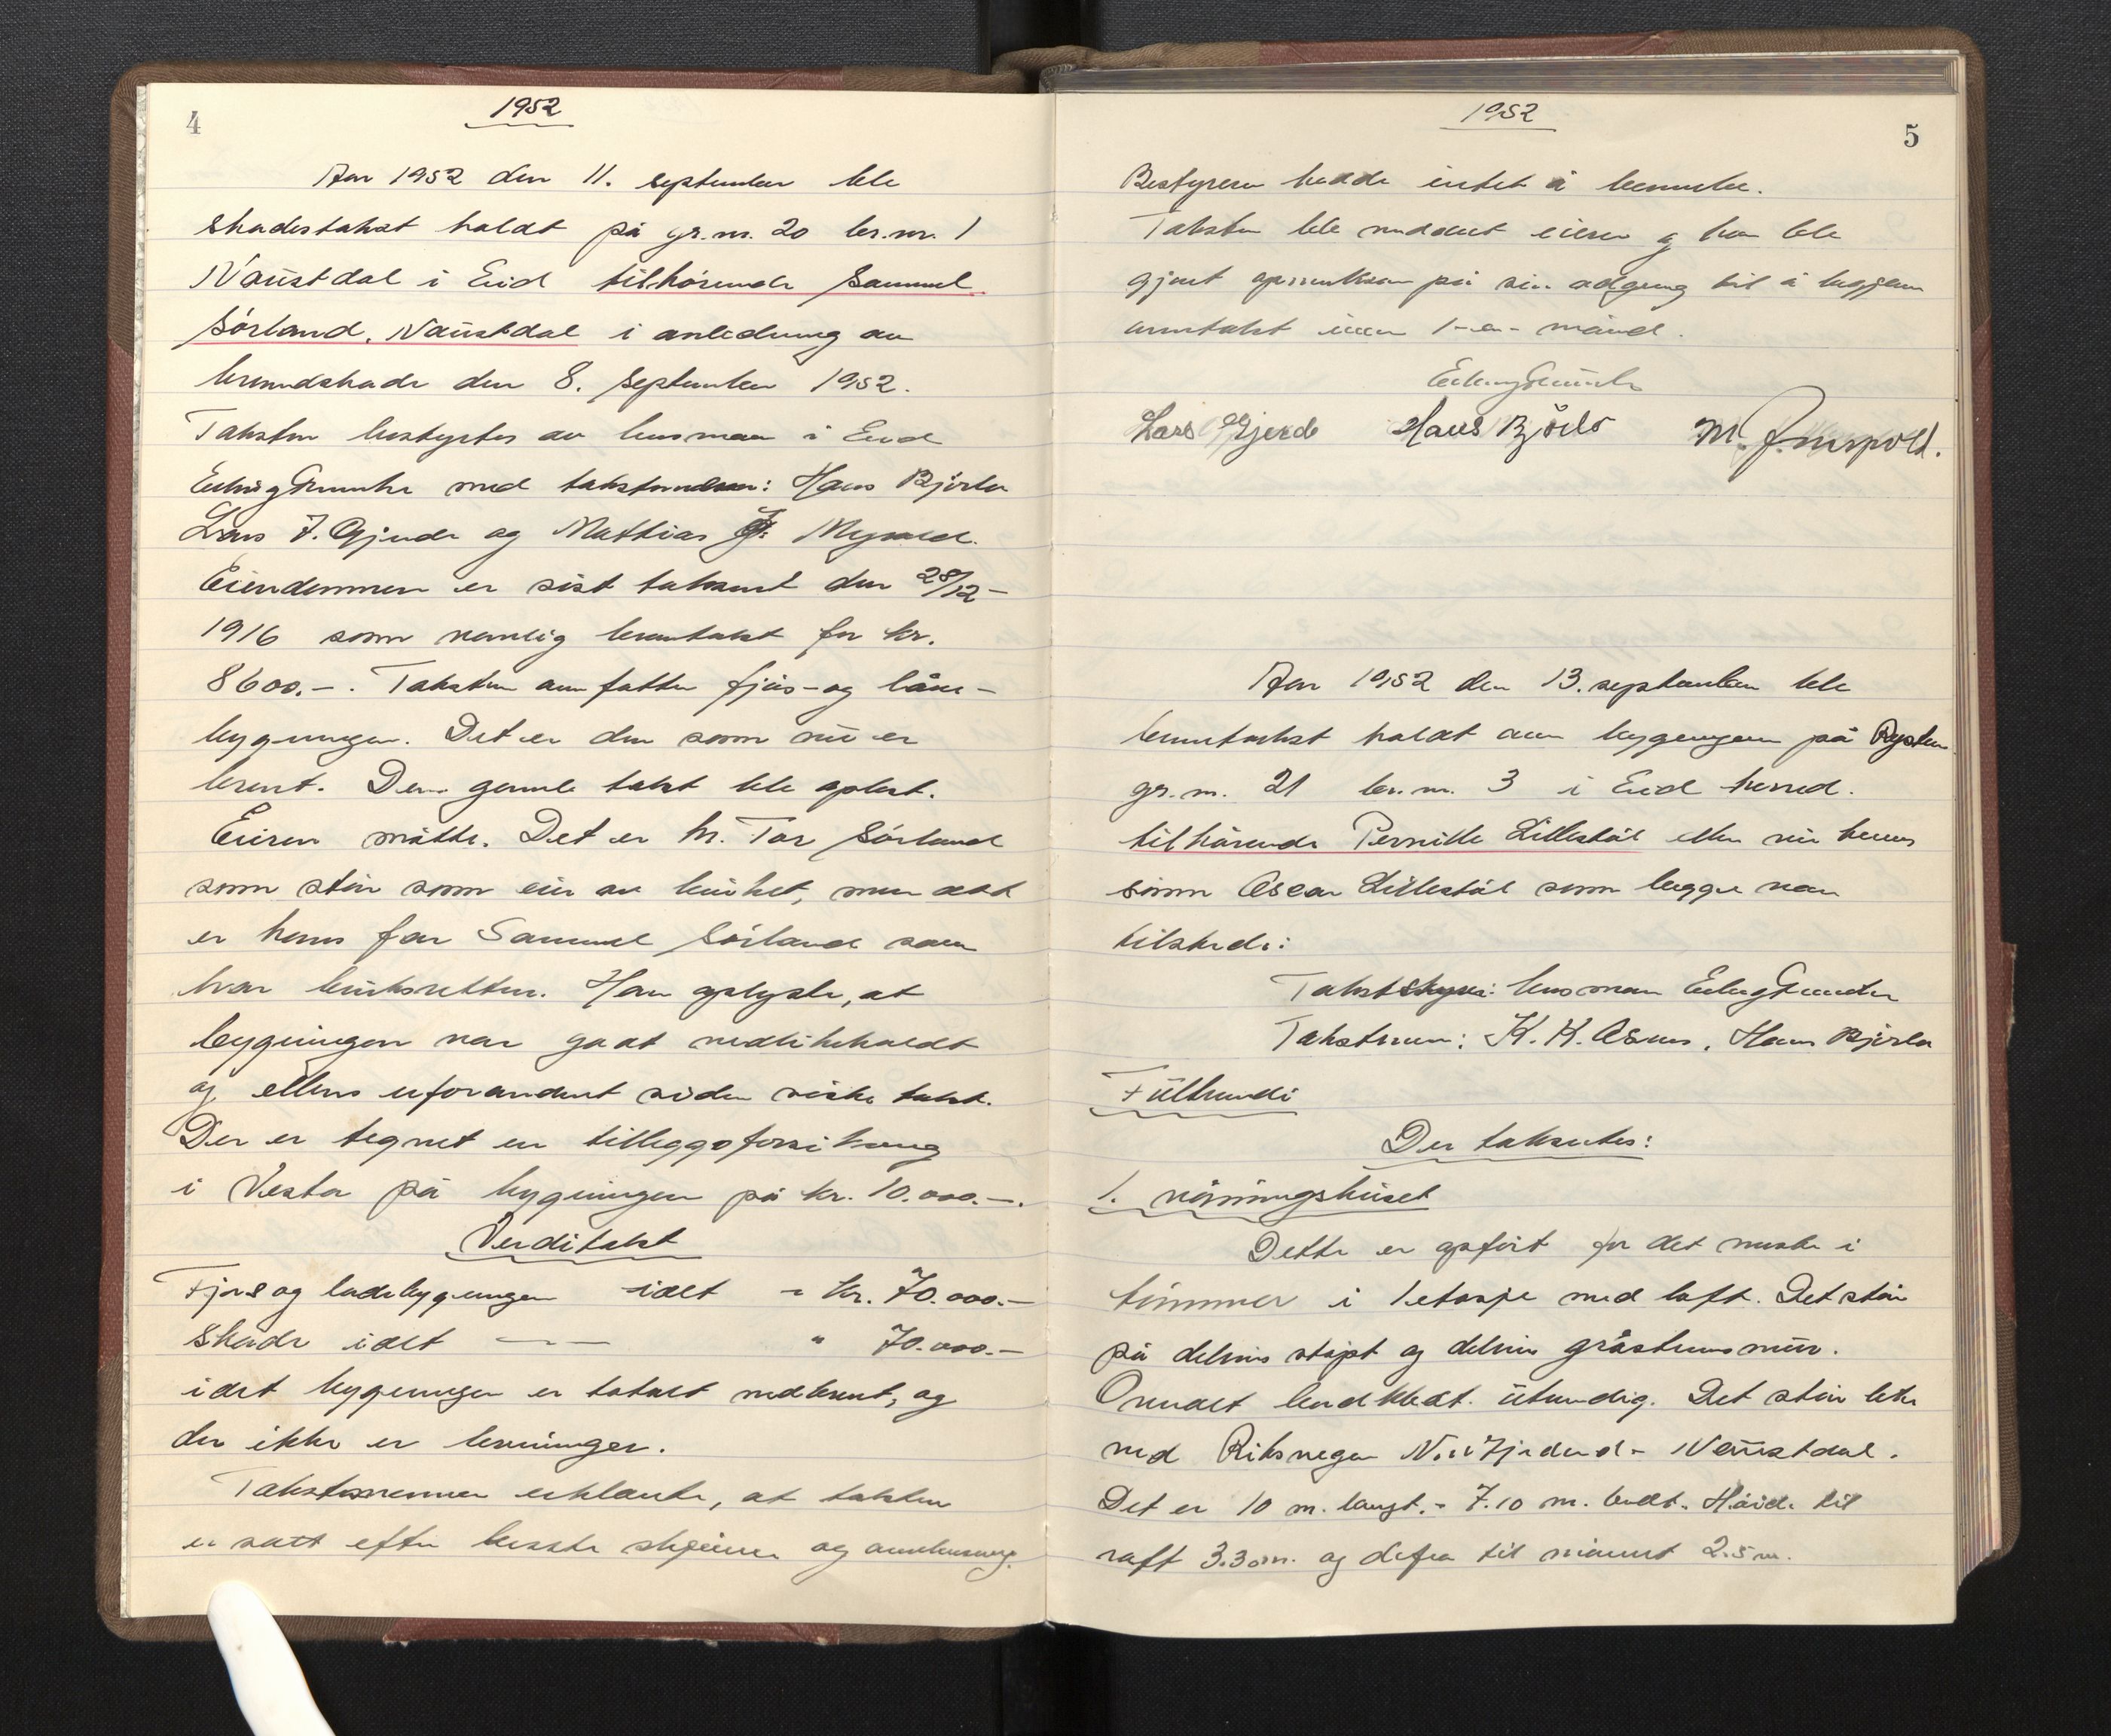 4
1952
Aar 1952 den 11. september ble
skadestakst holdt på gr.nr. 20 br.nr. 1
Naustdal i Eid tilhørende Samuel
Sørland, Naustdal i anledning av
brandskade den 8. september 1952.
Taksten bestyrtes av lensman i Eid
med takstmenn: Hans Bjørlo
Lars J. Gjerde og Mathias J. Myrold.
Eiendommen er sist taksert den 28/12-
1916 som vanlig branntakst for kr.
8600.-. Taksten omfatter fjös- og låve-
bygningen. Det er den som nu er
brent. Den gamle takst ble oplest.
Eieren møtte. Det er hr. Tor Sørland
som står som eier av bruket, men det
er hans far Samuel Sørland som
har bruksretten. Han oplyste, at
bygningen var godt vedlikeholdt
og ellers uforandret siden siste takst.
Der er tegnet en tilleggsforsikring
i Vesta på bygningen på kr. 10.000.-.
Verditakst
Fjös og ladebygningen idet - kr. 70.000.-
Skade idet — " 70.000.-
idet bygningen er totalt nedbrent, og
der ikke er levninger.
Takstmennene erklærte, at taksten
er satt efter beste skjönn og
1952
5
Bestyreren hadde intet å bemerke.
Taksten ble meddelt eieren og han ble
gjort opmerksom på sin adgang til å begjære
omtakst innen 1-en- måned.
Lars J Gjerde Hans Bjørlo M. J. Myrvold.
Aar 1952 den 13. september ble
branntakst holdt over bygningene på
gr.nr. 21 br.nr. 3 i Eid herred.
tilhørende Pernille Lillestøl eller nu hennes
sønn Oscar Lillestøl som begge var
tilstede:
Takstbestyrer: lensman
Takstmenn: K. K. Osmo, Hans Bjørlo
Fulltrundi
Der takseres:
1. våningshuset
Dette er opført for det meste i
tømmer i 1 etasje med loft. Det står
på delvis støpt og delvis gråsteinsmur.
Overalt bordkledt utvendig. Det står like
ved Riksvegen Nordfjordeid - Naustdal.
Det er 10 m. langt. - 7.10 m. bredt. Høide til
raft 3.30 m. og derfra til mønnet 2.5 m.